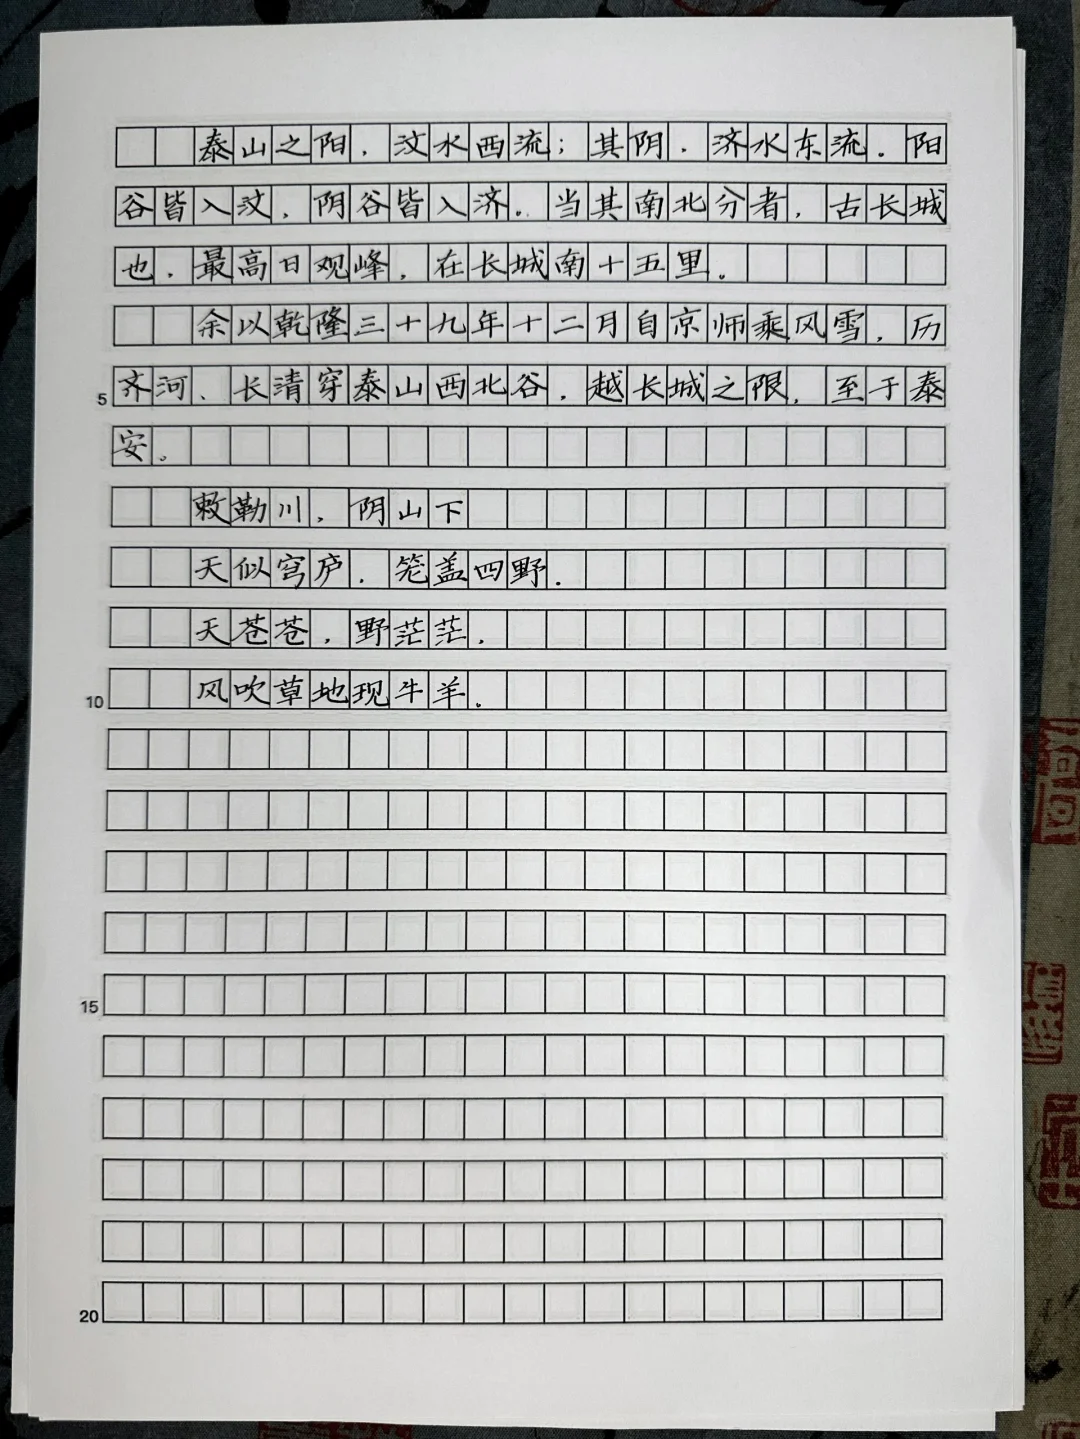 泰山之阳，汶水西流；其阴，济水东流。阳
谷皆入汶，阴谷皆入济。当其南北分者，古长城
也，最高日观峰，在长城南十五里。
余以乾隆三十九年十二月自京师乘风雪，历
5 齐河、长清穿泰山西北谷，越长城之限，至于泰
安。
敕勒川，阴山下
天似穹庐，笼盖四野。
天苍苍，野茫茫，
10 风吹草地现牛羊。
15
20